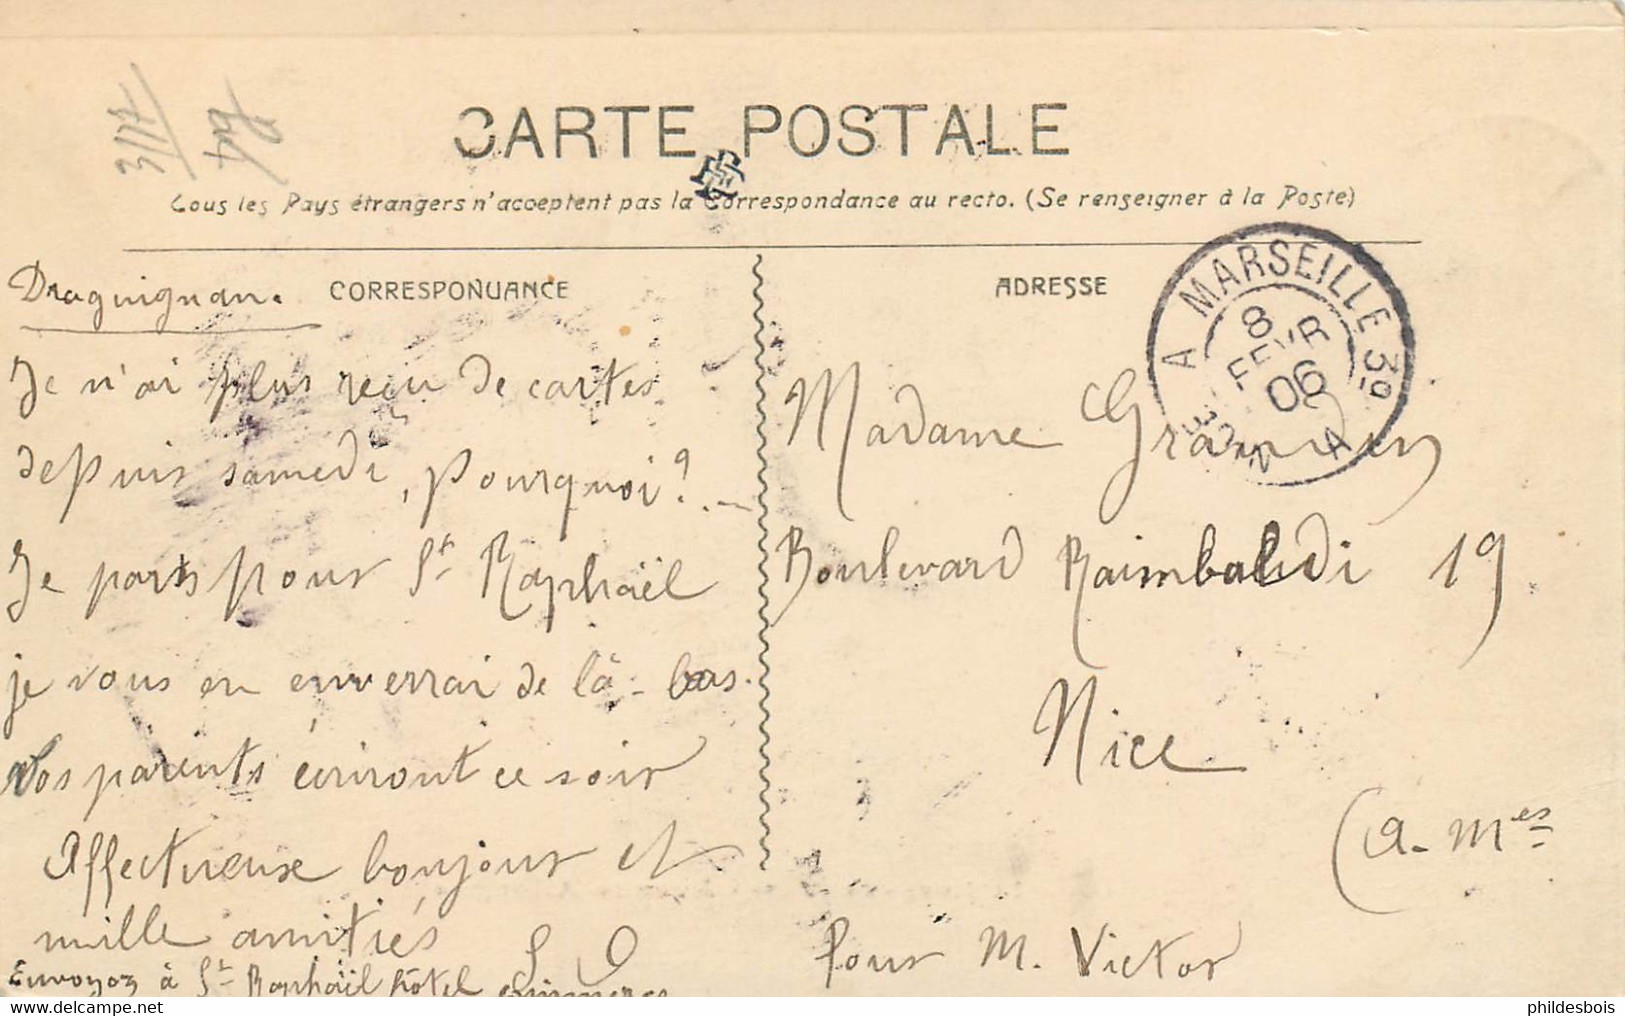 CARTE POSTALE
Tous les Pays étrangers n'acceptent pas la Correspondance au recto. (Se renseigner à la Poste)
CORRESPONDANCE
Draguignan.
Je n'ai plus reçu de cartes
depuis samedi, pourquoi? -
Je pars pour St Raphaël
je vous en enverrai de là-bas.
Vos parents écriront ce soir
Affectueuse bonjour et
mille amitiés
Envoyez à St Raphaël hôtel commerce
ADRESSE
A MARSEILLE 3º
8
FEVR
06
Madame
Boulevard Raimbaldi 19
Nice
(A-Mes
Pour M. Victor
phildesbois